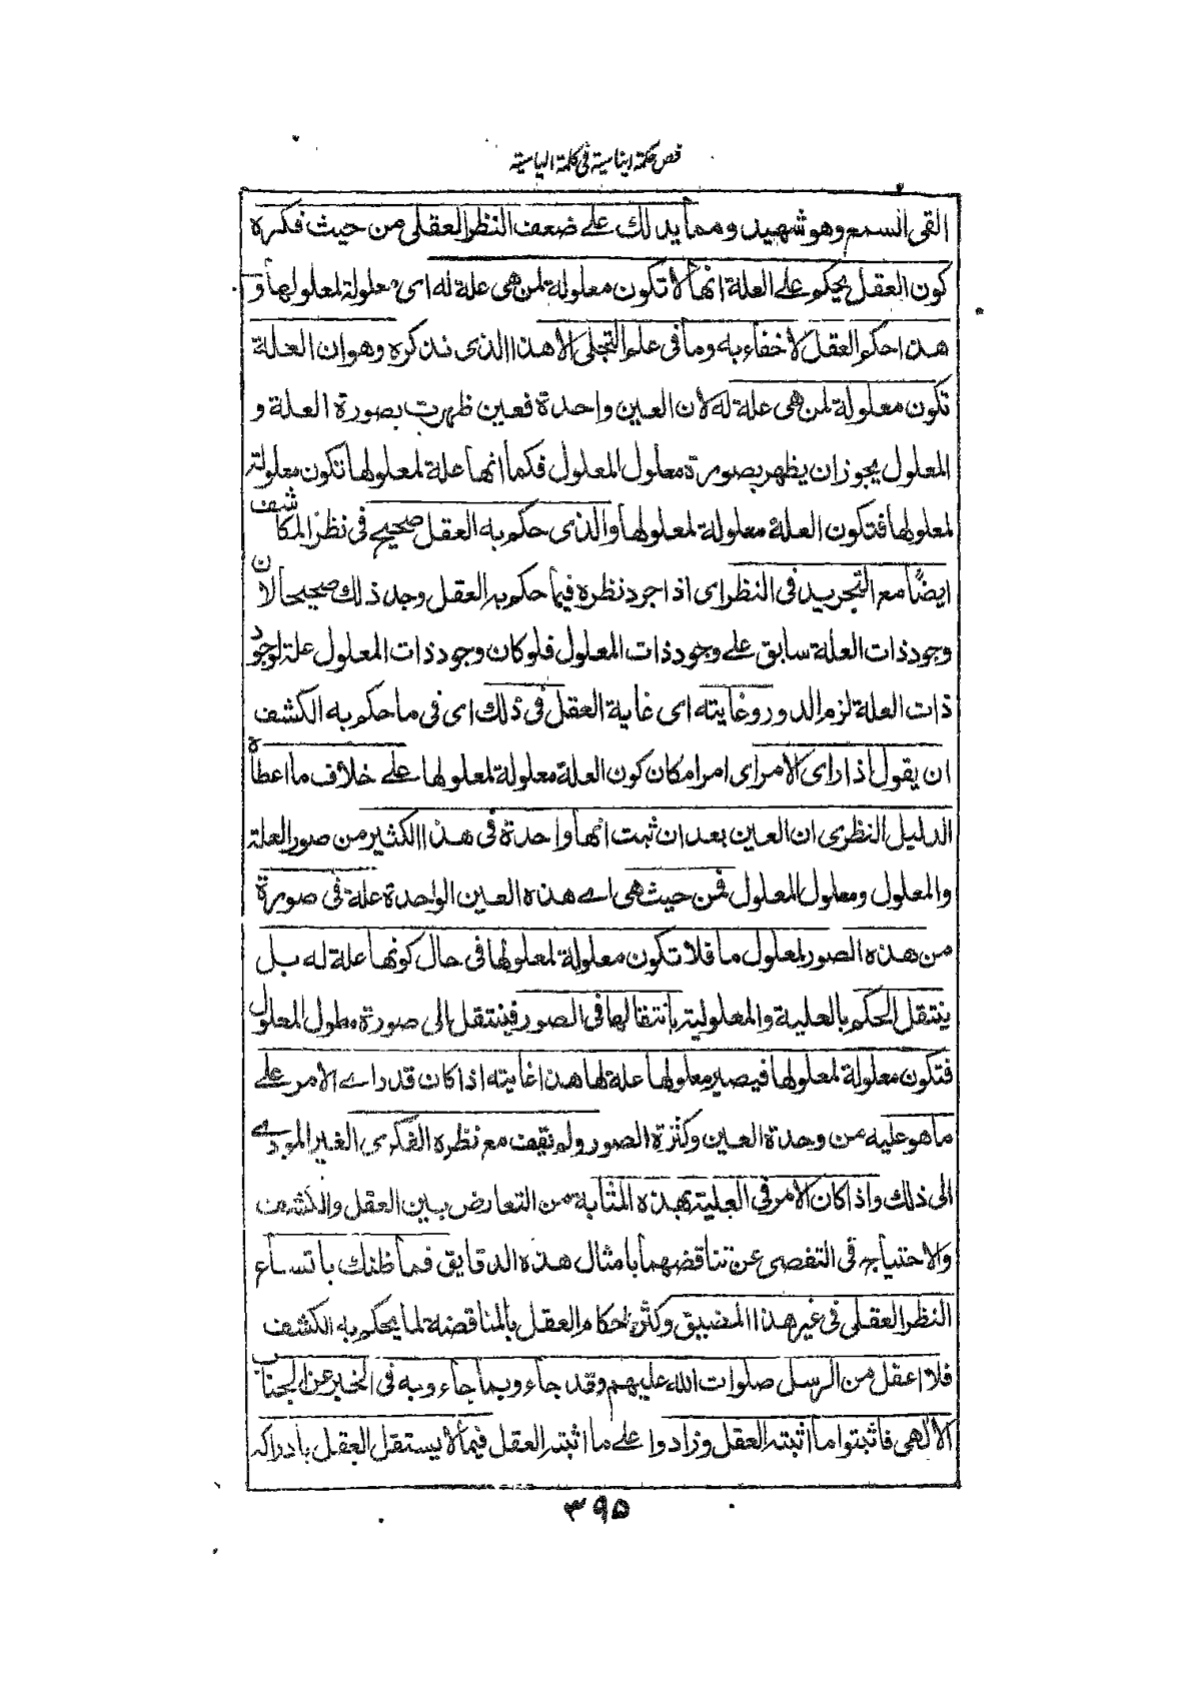 فص حكمة ايناسية فى كلمة الياسية
القى السمع وهو شهيد ومما يدلك على ضعف النظر العقلى من حيث فكره
كون العقل يحكم على العلة انها لا تكون معلولة لمن هى علة له اى معلولة لمعلولها و
هذا حكم العقل لا خفاء به وما فى علم التجلى الا هذا الذى نذكره وهو ان العلة
تكون معلولة لمن هى علة له لان العين واحدة فعين ظهرت بصورة العلة و
المعلول يجوز ان يظهر بصورة معلول المعلول فكما انها علة لمعلولها تكون معلولة
لمعلولها فتكون العلة معلولة لمعلولها والذى حكم به العقل صحيح فى نظر المكاشف
ايضًا مع التجريد فى النظر اى اذا جرد نظره فيما حكم به العقل وجد ذلك صحيحا لان
وجود ذات العلة سابق على وجود ذات المعلول فلو كان وجود ذات المعلول علة لوجود
ذات العلة لزم الدور وغايته اى غاية العقل فى ذلك اى فى ما حكم به الكشف
ان يقول اذا راى الامر اى امر امكان كون العلة معلولة لمعلولها على خلاف ما اعطاه
الدليل النظرى ان العين بعد ان ثبت انها واحدة فى هذا الكثير من صور العلة
والمعلول ومعلول المعلول فمن حيث هى اے هذه العين الواحدة علة فى صورة
من هذه الصور لمعلول ما فلا تكون معلولة لمعلولها فى حال كونها علة له بل
ينتقل الحكم بالعلية والمعلولية بانتقالها فى الصور فينتقل الى صورة معلول المعلول
فتكون معلولة لمعلولها فيصير معلولها علة لها هذا غايته اذا كان قد راے الامر على
ما هو عليه من وحدة العين وكثرة الصور ولم يقف مع نظره الفكرى الغير المودے
الى ذلك واذا كان الامر فى العلية بهذه المثابة من التعارض بين العقل والكشف
والاحتياج فى التفصى عن تناقضهما بامثال هذه الدقايق فما ظنك باتساع
النظر العقلى فى غير هذا المضيق وكثرة احكام العقل بالمناقضة لما يحكم به الكشف
فلا اعقل من الرسل صلوات الله عليهم وقد جاءوا بما جاءوا به فى الخبر عن الجناب
الالهى فاثبتوا ما اثبته العقل وزادوا على ما اثبته العقل فيما لا يستقل العقل بادراكه
۳۹۵